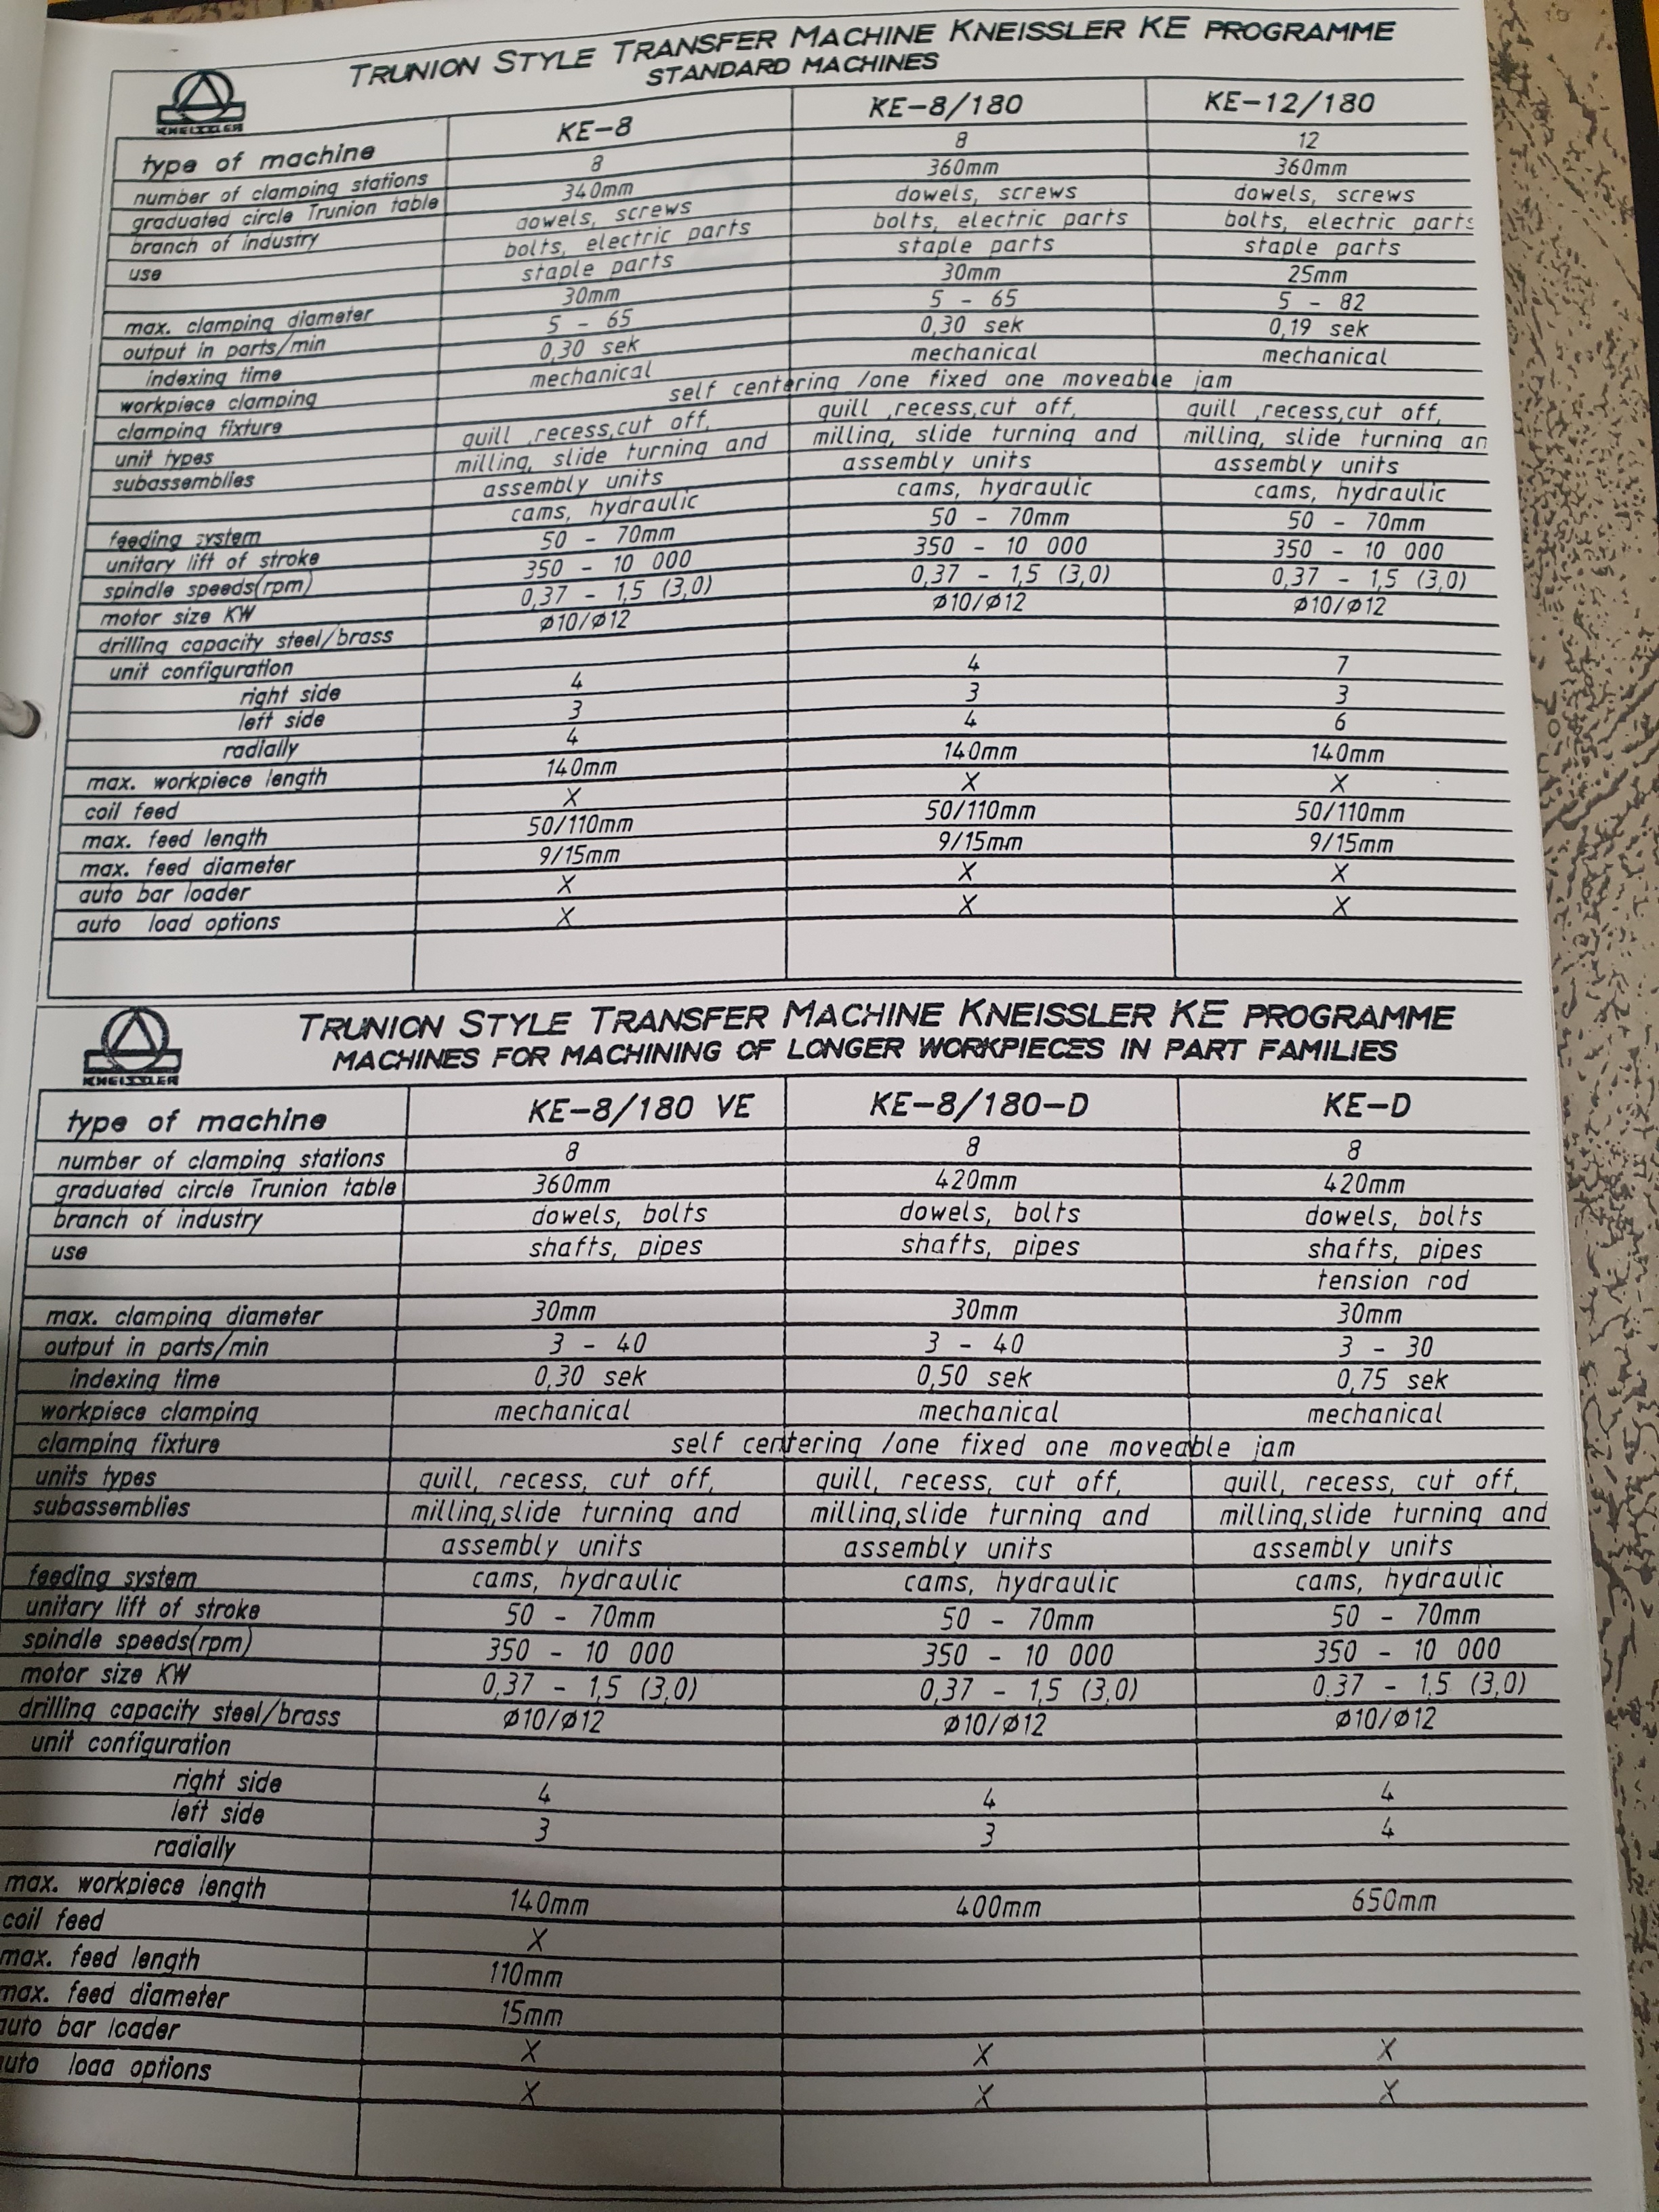 TRUNION STYLE TRANSFER MACHINE KNEISSLER KE PROGRAMME
STANDARD MACHINES
KNEISSLER
type of machine KE-8 KE-8/180 KE-12/180
number of clamping stations 8 8 12
graduated circle Trunion table 340mm 360mm 360mm
branch of industry dowels, screws dowels, screws dowels, screws
use bolts, electric parts bolts, electric parts bolts, electric parts
staple parts staple parts staple parts
max. clamping diameter 30mm 30mm 25mm
output in parts/min 5 - 65 5 - 65 5 - 82
indexing time 0,30 sek 0,30 sek 0,19 sek
workpiece clamping mechanical mechanical mechanical
clamping fixture self centering /one fixed one moveable jam
unit types quill ,recess,cut off, quill ,recess,cut off, quill ,recess,cut off,
subassemblies milling, slide turning and milling, slide turning and milling, slide turning an
assembly units assembly units assembly units
feeding system cams, hydraulic cams, hydraulic cams, hydraulic
unitary lift of stroke 50 - 70mm 50 - 70mm 50 - 70mm
spindle speeds(rpm) 350 - 10 000 350 - 10 000 350 - 10 000
motor size KW 0,37 - 1,5 (3,0) 0,37 - 1,5 (3,0) 0,37 - 1,5 (3,0)
drilling capacity steel/brass ø10/ø12 ø10/ø12 ø10/ø12
unit configuration
right side 4 4 7
left side 3 3 3
radially 4 4 6
max. workpiece length 140mm 140mm 140mm
coil feed X X X
max. feed length 50/110mm 50/110mm 50/110mm
max. feed diameter 9/15mm 9/15mm 9/15mm
auto bar loader X X X
auto load options X X X
TRUNION STYLE TRANSFER MACHINE KNEISSLER KE PROGRAMME
MACHINES FOR MACHINING OF LONGER WORKPIECES IN PART FAMILIES
KNEISSLER
type of machine KE-8/180 VE KE-8/180-D KE-D
number of clamping stations 8 8 8
graduated circle Trunion table 360mm 420mm 420mm
branch of industry dowels, bolts dowels, bolts dowels, bolts
use shafts, pipes shafts, pipes shafts, pipes
tension rod
max. clamping diameter 30mm 30mm 30mm
output in parts/min 3 - 40 3 - 40 3 - 30
indexing time 0,30 sek 0,50 sek 0,75 sek
workpiece clamping mechanical mechanical mechanical
clamping fixture self centering /one fixed one moveable jam
units types quill, recess, cut off, quill, recess, cut off, quill, recess, cut off,
subassemblies milling,slide turning and milling,slide turning and milling,slide turning and
assembly units assembly units assembly units
feeding system cams, hydraulic cams, hydraulic cams, hydraulic
unitary lift of stroke 50 - 70mm 50 - 70mm 50 - 70mm
spindle speeds(rpm) 350 - 10 000 350 - 10 000 350 - 10 000
motor size KW 0,37 - 1,5 (3,0) 0,37 - 1,5 (3,0) 0,37 - 1,5 (3,0)
drilling capacity steel/brass ø10/ø12 ø10/ø12 ø10/ø12
unit configuration
right side 4 4 4
left side 3 3 4
radially
max. workpiece length 140mm 400mm 650mm
coil feed X
max. feed length 110mm
max. feed diameter 15mm
auto bar loader X X X
auto load options X X X